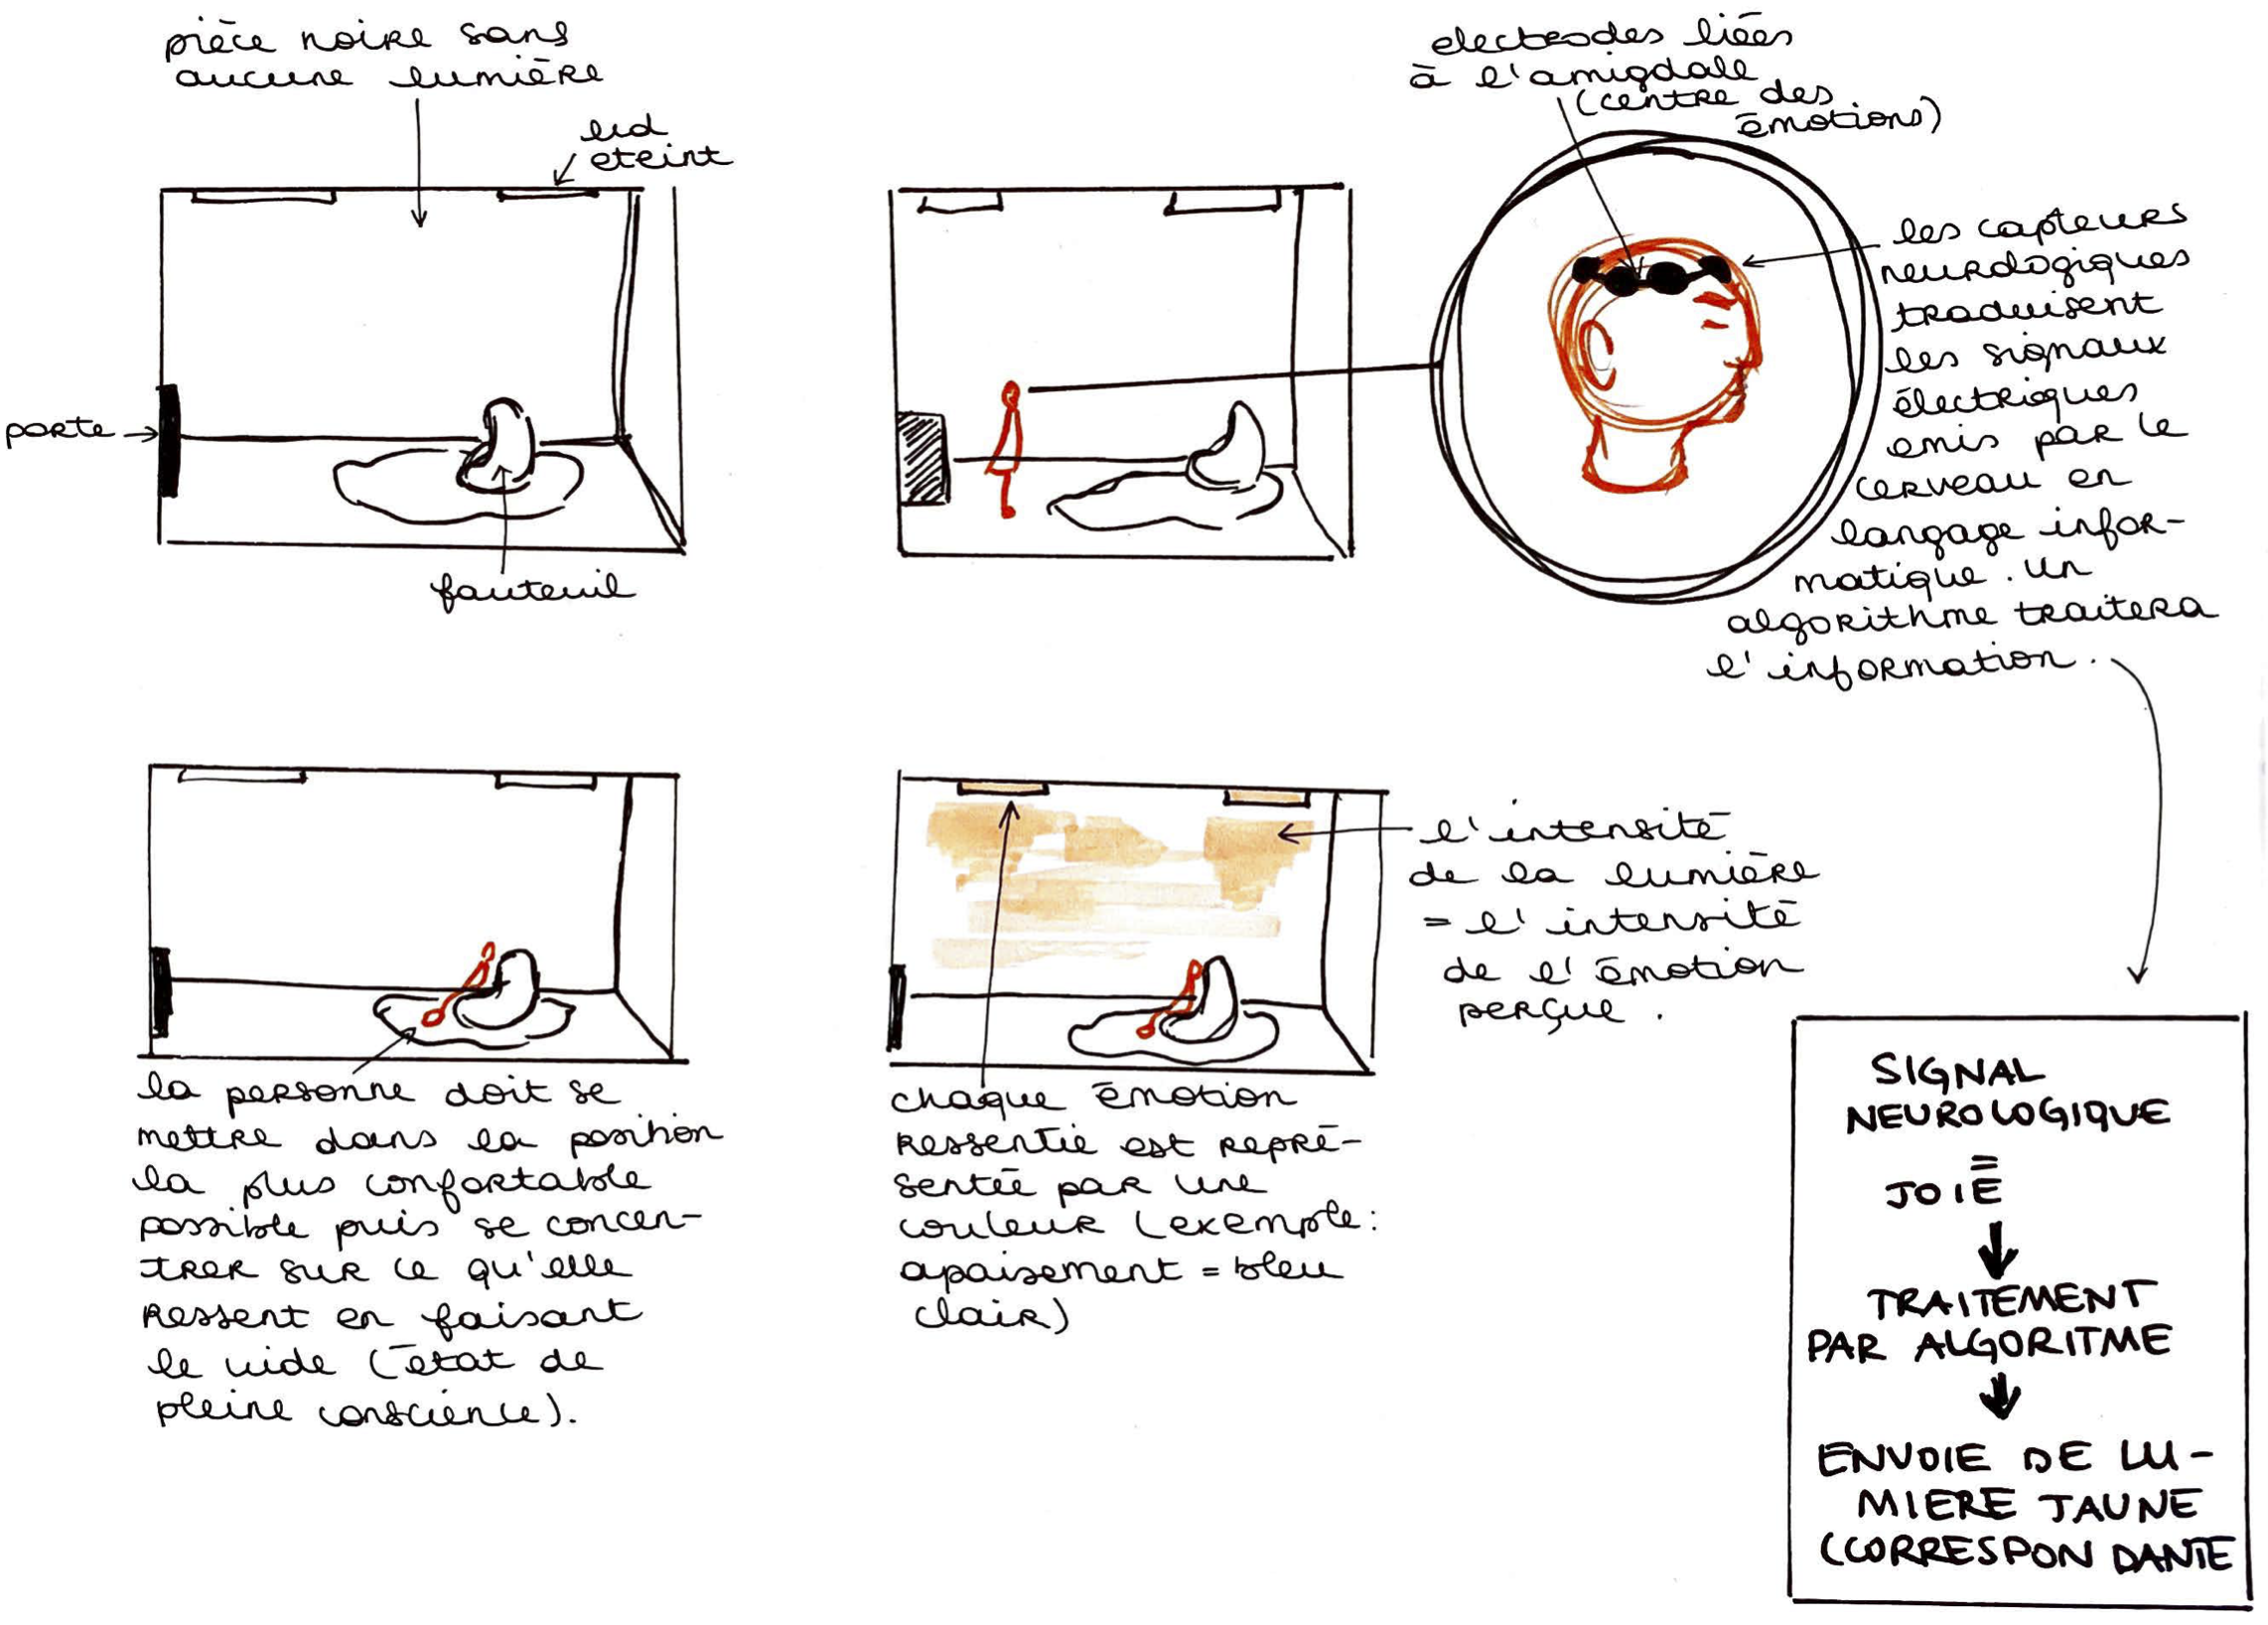 pièce noire sans
aucune lumière
led
eteint
porte
fauteuil
electrodes liées
à l'amigdale
(centre des
émotions)
les capteurs
neurologiques
traduisent
les signaux
électriques
emis par le
cerveau en
langage infor-
matique. Un
algorithme traitera
l'information.
la personne doit se
mettre dans la position
la plus confortable
possible puis se concen-
trer sur ce qu'elle
ressent en faisant
le vide (état de
pleine conscience).
chaque émotion
ressentie est repré-
sentée par une
couleur (exemple:
apaisement = bleu
clair)
l'intensité
de la lumière
= l'intensité
de l'émotion
perçue.
SIGNAL
NEUROLOGIQUE
=
JOIE
↓
TRAITEMENT
PAR ALGORITME
↓
ENVOIE DE LU-
MIERE JAUNE
(CORRESPONDANTE